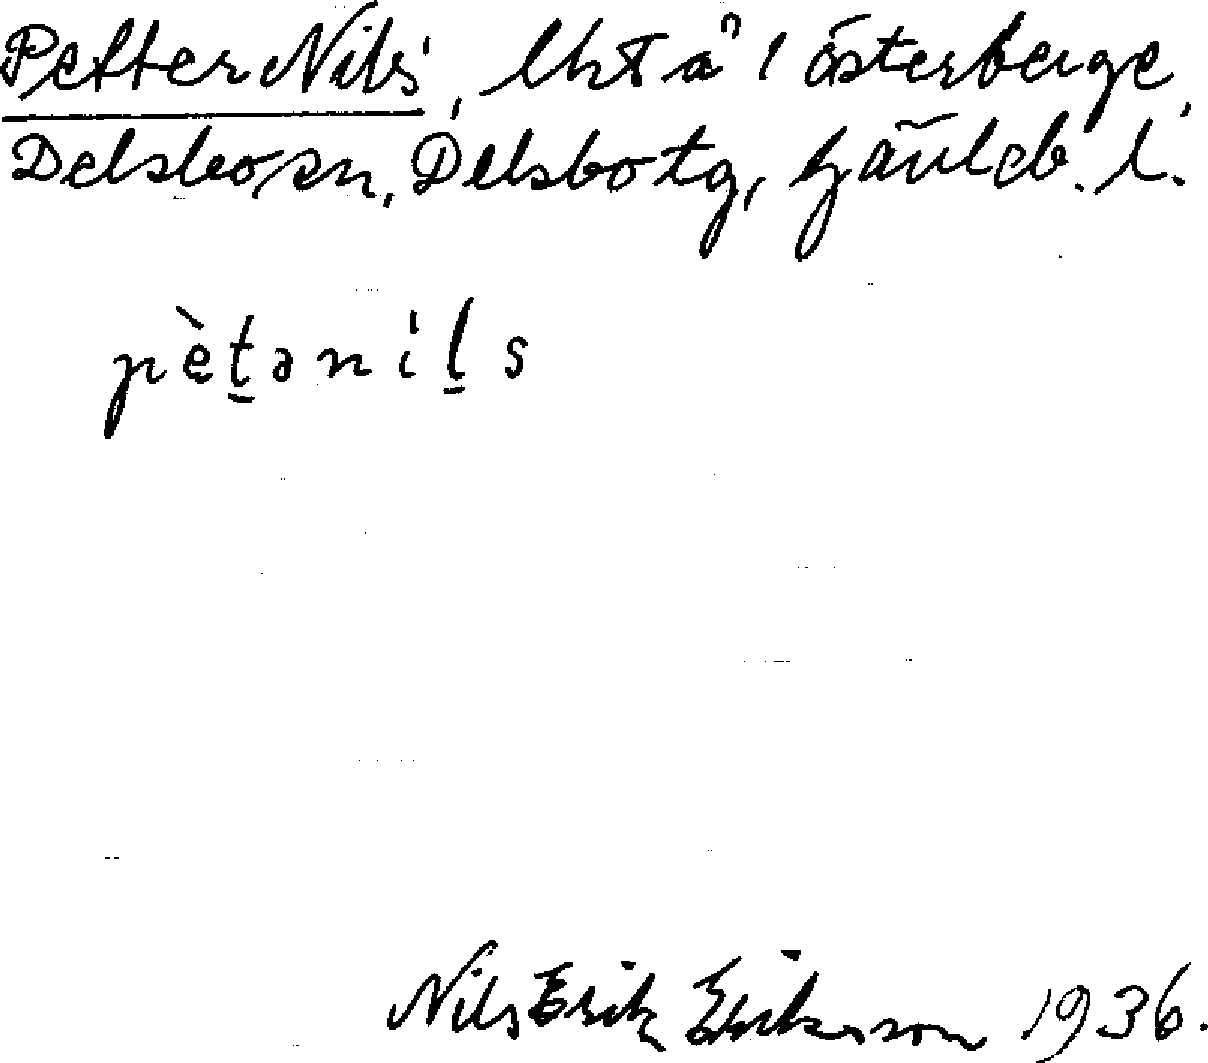 Petter Nils', i Österberge,
Delsbo sn, Delsbo tg, Gävleb. l.
pètəni'ls
Nils Erik Eriksson 1936.